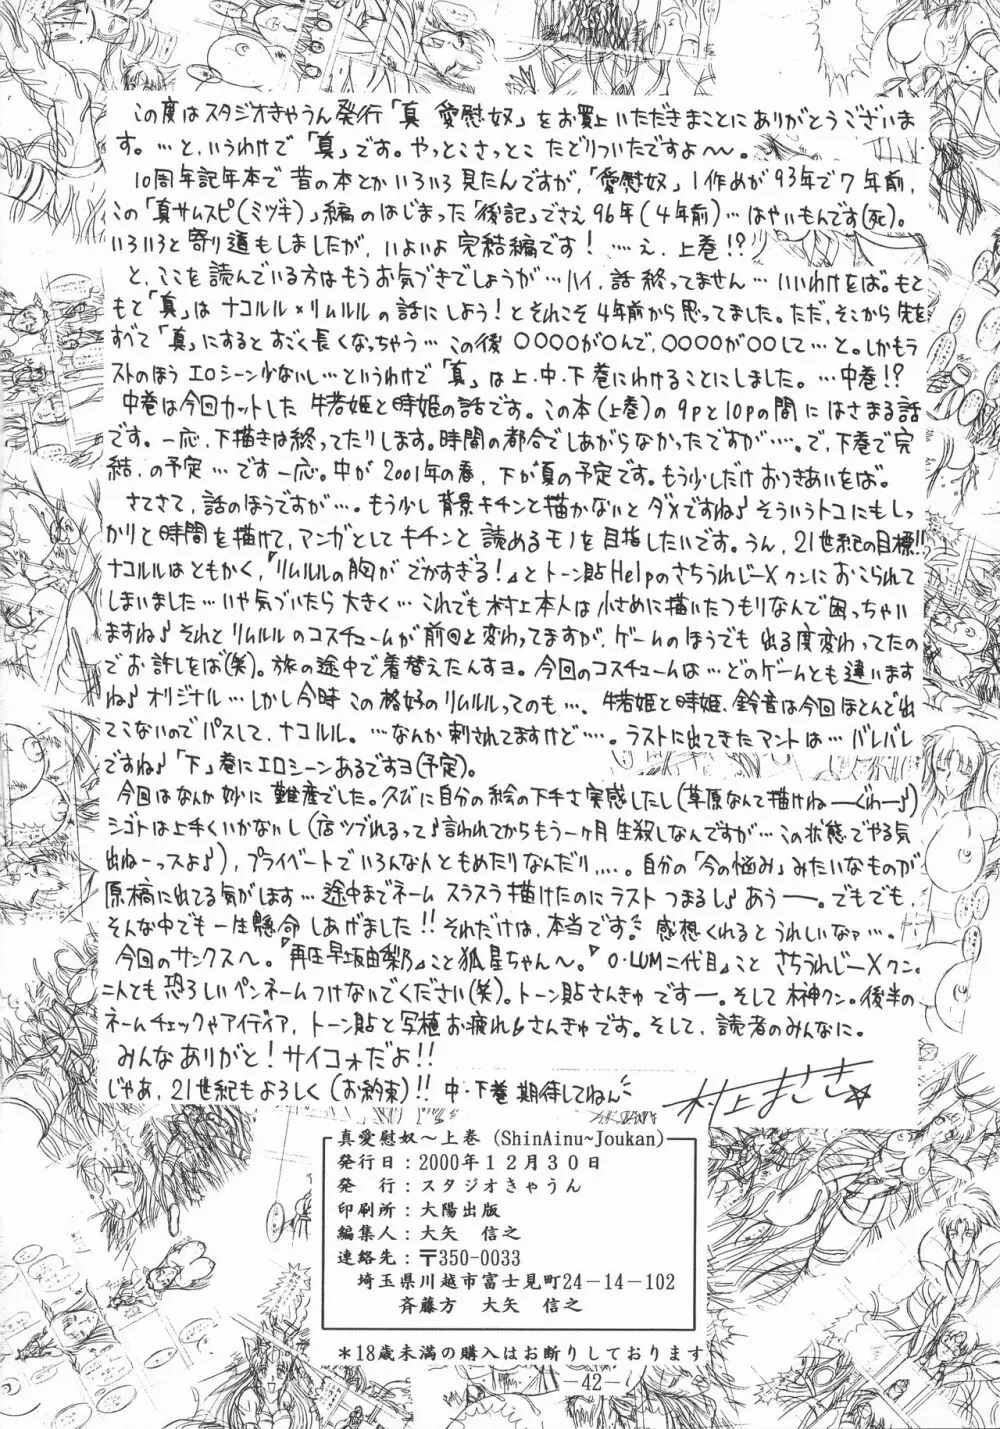 この度はスタジオきゃうん発行「真 愛慰奴」をお買上いただきまことにありがとうございま
す。…と、いうわけで「真」です。やっとこさっとこ たどりついたですよ～～。
10周年記年本で昔の本とかいろいろ見たんですが、「愛慰奴」1作めが93年で7年前、
この「真サムスピ(ミヅキ)」編のはじまった「後記」でさえ96年(4年前)…はやいもんです(死)。
いろいろと寄り道もしましたが、いよいよ完結編です!……え、上巻!?
と、ここを読んでいる方はもうお気づきでしょうが…ハイ、話終ってません…いいわけをば。もと
もと「真」はナコルル×リムルルの話にしよう!とそれこそ4年前から思ってました。ただ、そこから先を
すべて「真」にするとすごく長くなっちゃう…この後○○○○が○んで、○○○○が○○して…と。しかもラ
ストのほうエロシーン少ないし…というわけで「真」は上・中・下巻にわけることにしました。…中巻!?
中巻は今回カットした牛若姫と時姫の話です。この本(上巻)の9pと10pの間にはさまる話
です。一応、下描きは終ってたりします。時間の都合でしあがらなかったですが…。で、下巻で完
結、の予定…です一応。中が2001年の春、下が夏の予定です。もう少しだけおつきあいをば。
さてさて、話のほうですが…。もう少し背景キチンと描かないとダメですね♪そういうトコにもしっ
かりと時間を描けて、マンガとしてキチンと読めるモノを目指したいです。うん、21世紀の目標!!
ナコルルはともかく、『リムルルの胸がでかすぎる!』とトーン貼Helpのさちうれじーxクンにおこられて
しまいました…いや気づいたら大きく…これでも村上本人は小さめに描いたつもりなんで困っちゃい
ますね♪それとリムルルのコスチュームが前回と変わってますが、ゲームのほうでも出る度変わってたの
でお許しをば(笑)。旅の途中で着替えたんすヨ。今回のコスチュームは…どのゲームとも違います
ね♪オリジナル…しかし今時この格好のリムルルってのも…。牛若姫と時姫、鈴音は今回ほとんど出
てこないのでパスして、ナコルル。…なんか刺されてますけど…。ラストに出てきたマントは…バレバレ
ですね♪「下」巻にエロシーンあるですヨ(予定)。
今回はなんか妙に難産でした。久びに自分の絵の下手さ実感したし(草原なんて描けねーーぐわー♪)
シゴトは上手くいかないし(店ツブれるって♪言われてからもう一ヶ月生殺しなんですが…この状態でやる気
出ねーっスよ♪)、プライベートでいろんな人ともめたりなんだり…。自分の「今の悩み」みたいなものが
原稿に出てる気がします…途中までネームスラスラ描けたのにラストつまるし♪あうーー。でもでも、
そんな中でも一生懸命しあげました!!それだけは、本当です。感想くれるとうれしいなァ…。
今回のサンクスへ。『再圧早坂由梨乃』こと狐星ちゃんへ。『O・LUM二代目』ことさちうれじーxクン。
二人とも恐ろしいペンネームつけないでください(笑)。トーン貼さんきゅですー。そして榊クン。後半の
ネームチェックやアイディア、トーン貼と写植お疲れ&さんきゅです。そして、読者のみんなに。
みんなありがと!サイコォだよ!!
じゃあ、21世紀もよろしく(お約束)!!中・下巻期待してねん
村上まさき☆
真愛慰奴～上巻 (ShinAinu~Joukan)
発行日：2000年12月30日
発　行：スタジオきゃうん
印刷所：大陽出版
編集人：大矢　信之
連絡先：〒350-0033
埼玉県川越市富士見町24－14－102
斉藤方　大矢　信之
＊18歳未満の購入はお断りしております
－42－